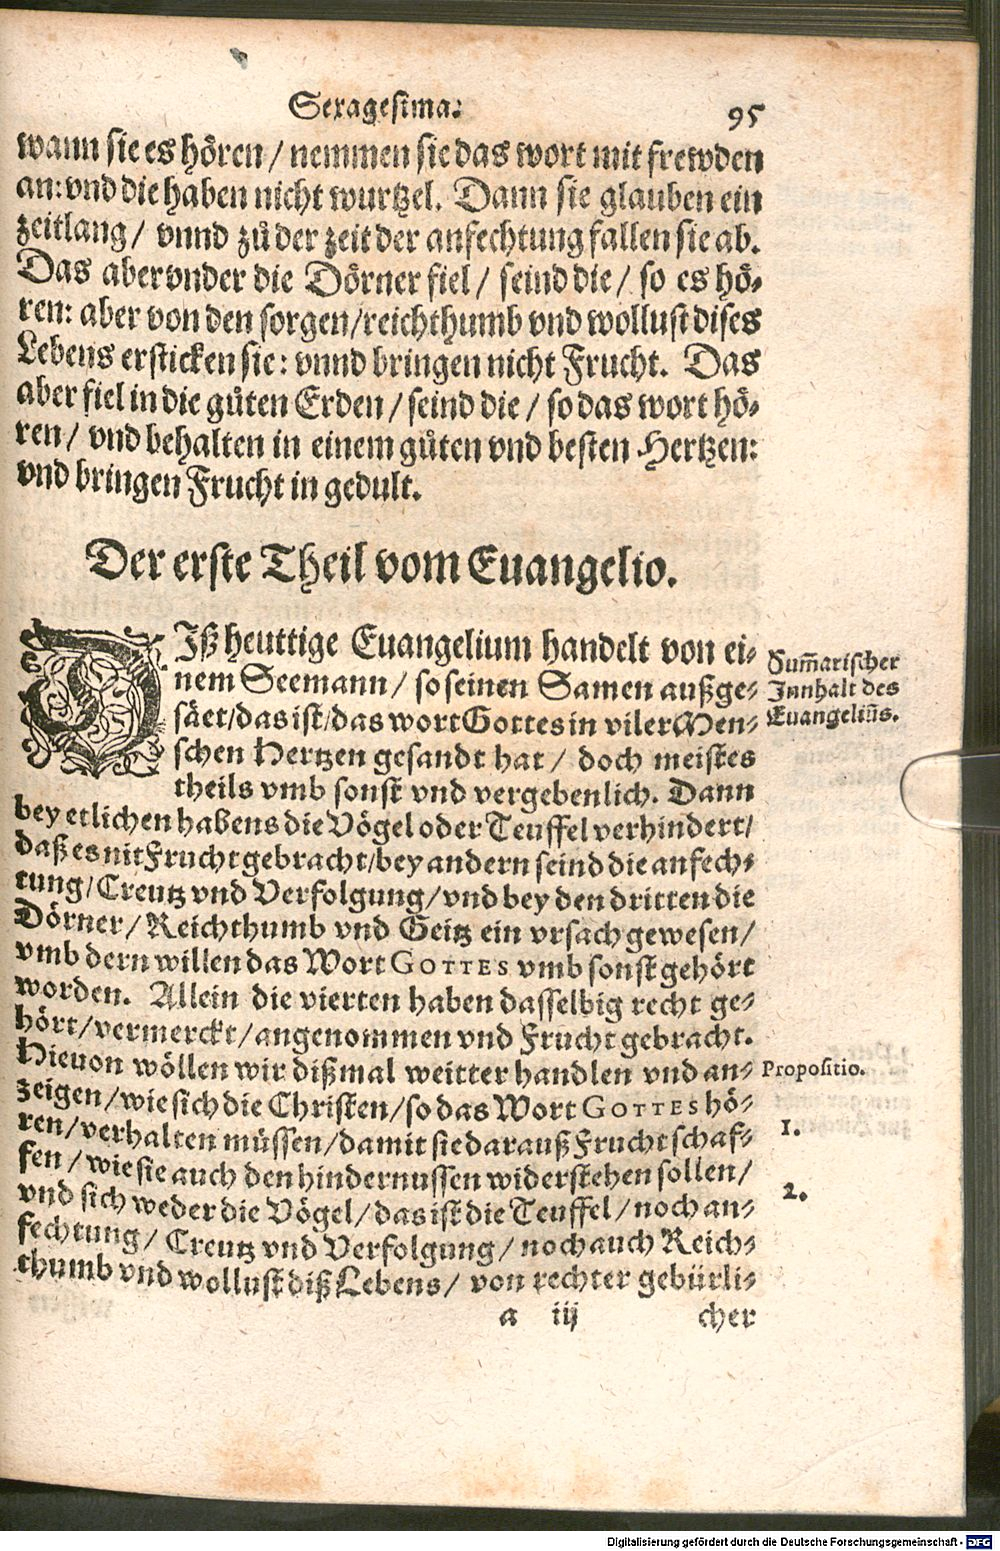 Sexagesima. 95
wann sie es hören / nemmen sie das wort mit frewden
an: vnd die haben nicht wurtzel. Dann sie glauben ein
zeitlang / vnnd zů der zeit der anfechtung fallen sie ab.
Das aber vnder die Dörner fiel / seind die / so es hö-
ren: aber von den sorgen/reichthumb vnd wollust dises
Lebens ersticken sie: vnnd bringen nicht Frucht. Das
aber fiel in die gůten Erden / seind die / so das wort hö-
ren / vnd behalten in einem gůten vnd besten Hertzen:
vnd bringen Frucht in gedult.
Der erste Theil vom Euangelio.
DIß heuttige Euangelium handelt von ei-
nem Seemann / so seinen Samen außge-
säet/das ist/das wort Gottes in viler Men-
schen Hertzen gesandt hat / doch meistes
theils vmb sonst vnd vergebenlich. Dann
bey etlichen habens die Vögel oder Teuffel verhindert/
daß es nit Frucht gebracht/bey andern seind die anfech-
tung/Creutz vnd Verfolgung/vnd bey den dritten die
Dörner/Reichthumb vnd Geitz ein vrsach gewesen/
vmb dern willen das Wort GOTTES vmb sonst gehört
worden. Allein die vierten haben dasselbig recht ge-
hört/vermerckt/angenommen vnd Frucht gebracht.
Hieuon wöllen wir dißmal weitter handlen vnd an-
zeigen/wie sich die Christen/so das Wort GOTTES hö-
ren/verhalten müssen/damit sie darauß Frucht schaf-
fen / wie sie auch den hindernussen widerstehen sollen/
vnd sich weder die Vögel/das ist die Teuffel/noch an-
fechtung/ Creutz vnd Verfolgung /noch auch Reich-
thumb vnd wollust diß Lebens/ von rechter gebürli-
a iij cher
Sum̃arischer
Innhalt des
Euangeliũs.
Propositio.
1.
2.
Digitalisierung gefördert durch die Deutsche Forschungsgemeinschaft - DFG